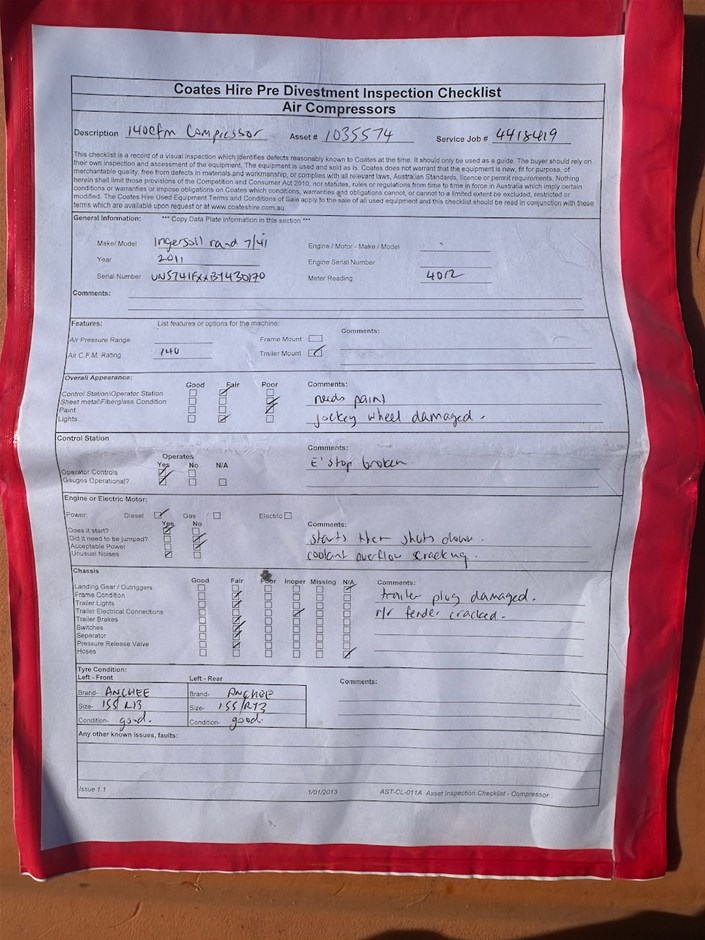 Coates Hire Pre Divestment Inspection Checklist
Air Compressors
Description 140cfm Compressor Asset # 1035574 Service Job # 4418419
This checklist is a record of a visual inspection which identifies defects reasonably known to Coates at the time. It should only be used as a guide. The buyer should rely on
their own inspection and assessment of the equipment. The equipment is used and sold as is. Coates does not warrant that the equipment is new, fit for purpose, of
merchantable quality, free from defects in materials and workmanship, or complies with all relevant laws, Australian Standards, licence or permit requirements. Nothing
herein shall limit those provisions of the Competition and Consumer Act 2010, nor statutes, rules or regulations from time to time in force in Australia which imply certain
conditions or warranties or impose obligations on Coates which conditions, warranties and obligations cannot, or cannot to a limited extent be excluded, restricted or
modified. The Coates Hire Used Equipment Terms and Conditions of Sale apply to the sale of all used equipment and this checklist should be read in conjunction with these
terms which are available upon request or at www.coateshire.com.au.
General Information: *** Copy Data Plate Information in this section ***
Make/Model Ingersoll rand 7/41 Engine / Motor - Make / Model
Year 2011 Engine Serial Number
Serial Number Meter Reading 4012
Comments:
Features: List features or options for the machine: Comments:
Air Pressure Range Frame Mount
Air C.F.M. Rating 140 Trailer Mount
Overall Appearance: Good Fair Poor Comments:
Control Station/Operator Station
Sheet metal/Fiberglass Condition needs paint
Paint
Lights jockey wheel damaged.
Control Station
Operates Comments:
Yes No N/A E'stop broken
Operator Controls
Gauges Operational?
Engine or Electric Motor:
Power: Diesel Gas Electric
Yes No Comments:
Does it start? starts then shuts down.
Did it need to be jumped?
Acceptable Power coolant overflow cracking.
Unusual Noises
Chassis
Good Fair Poor Inoper Missing N/A Comments:
Landing Gear / Outriggers trailer plug damaged.
Frame Condition
Trailer Lights r/r fender cracked.
Trailer Electrical Connections
Trailer Brakes
Switches
Separator
Pressure Release Valve
Hoses
Tyre Condition:
Left - Front Left - Rear Comments:
Brand- ANCHEE Brand- ANCHEE
Size- 155/R13 Size- 155/R13
Condition- good. Condition- good.
Any other known issues, faults:
Issue 1.1 1/01/2013 AST-CL-011A Asset Inspection Checklist - Compressor